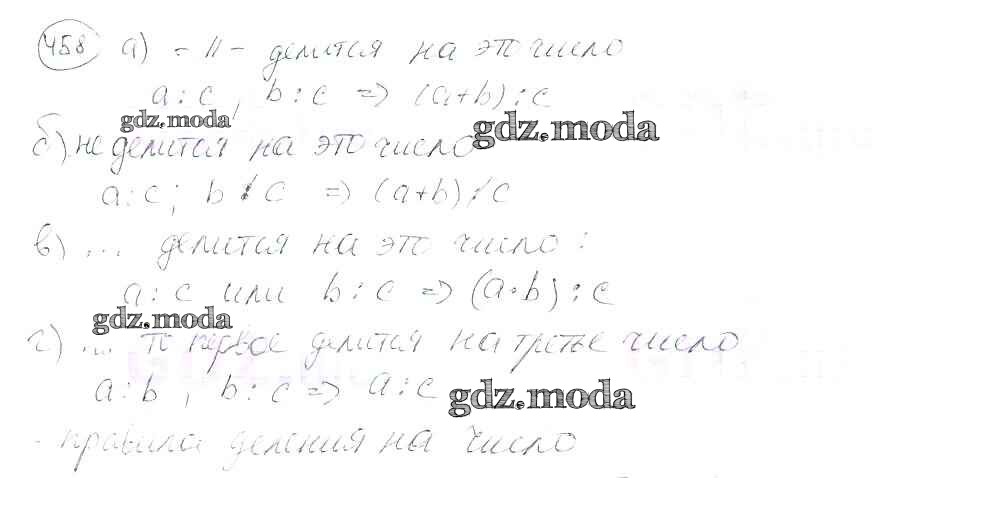 458 а) - || - делится на это число
a : c, b : c => (a+b) : c
gdz.moda
gdz.moda
б) не делится на это число
a : c ; b ⋮̸ c => (a+b) ⋮̸ c
в) ... делится на это число :
a : c или b : c => (a·b) : c
gdz.moda
г) ... то первое делится на третье число
a : b , b : c => a : c
gdz.moda
- правила деления на число